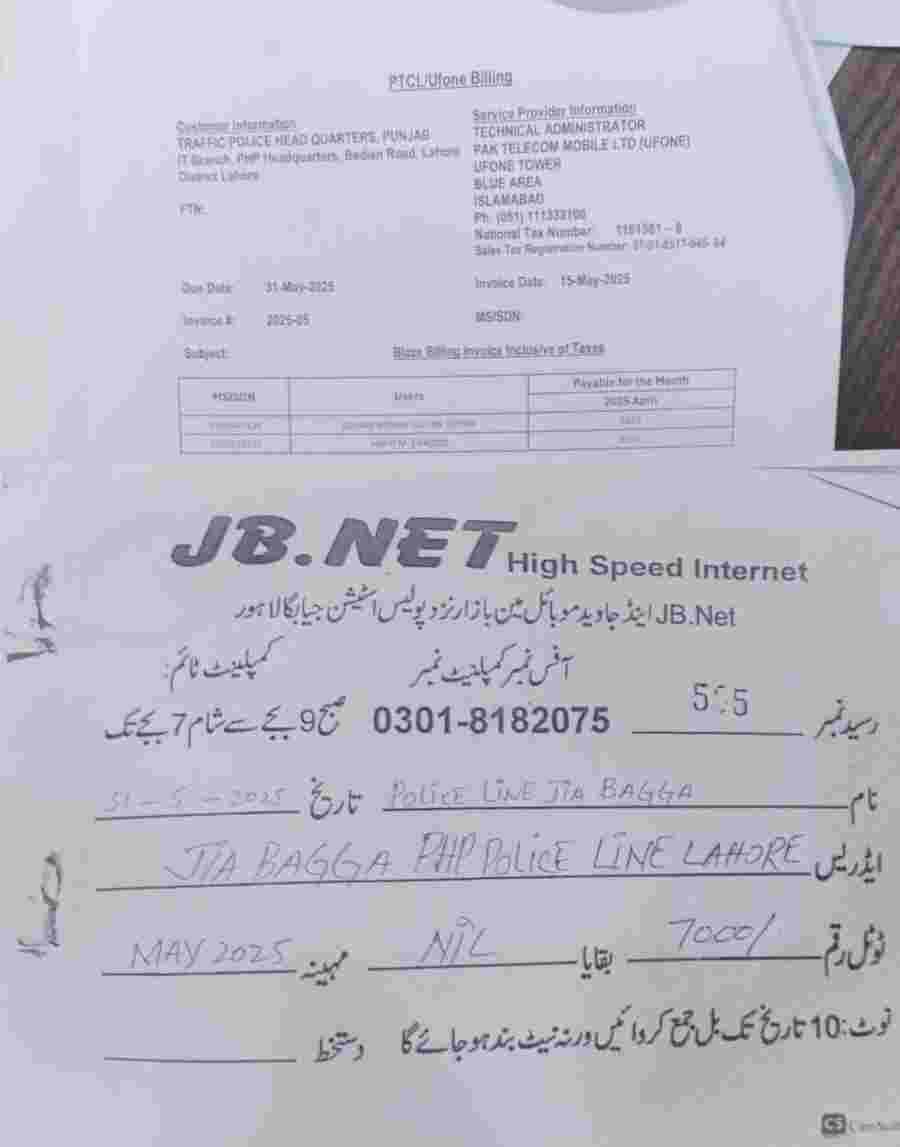 PTCL/Ufone Billing
Customer Information
TRAFFIC POLICE HEAD QUARTERS, PUNJAB
IT Branch, PHP Headquarters, Bedian Road, Lahore
District Lahore
FTN:
Service Provider Information
TECHNICAL ADMINISTRATOR
PAK TELECOM MOBILE LTD (UFONE)
UFONE TOWER
BLUE AREA
ISLAMABAD
Ph: (051) 111333100
National Tax Number:
Sales Tax Registration Number:
Due Date: 31-May-2025
Invoice Date: 15-May-2025
Invoice #: 2025-05
MS/SDN:
Subject: Blaze Billing Invoice Inclusive of Taxes
MSISDN Users Payable for the Month
2025 April
JB.NET High Speed Internet
JB.Net اینڈ جاوید موبائل مین بازار نزد پولیس اسٹیشن جیا بگا لاہور
آفس نمبر کمپلینٹ نمبر کمپلینٹ ٹائم:
رسید نمبر 0301-8182075 صبح 9 بجے سے شام 7 بجے تک
نام POLICE LINE JIA BAGGA تاریخ 31-5-2025
ایڈریس JIA BAGGA PHP POLICE LINE LAHORE
ٹوٹل رقم 7000/ بقایا NIL مہینہ MAY 2025
نوٹ: 10 تاریخ تک بل جمع کروائیں ورنہ نیٹ بند ہو جائے گا دستخط
CS